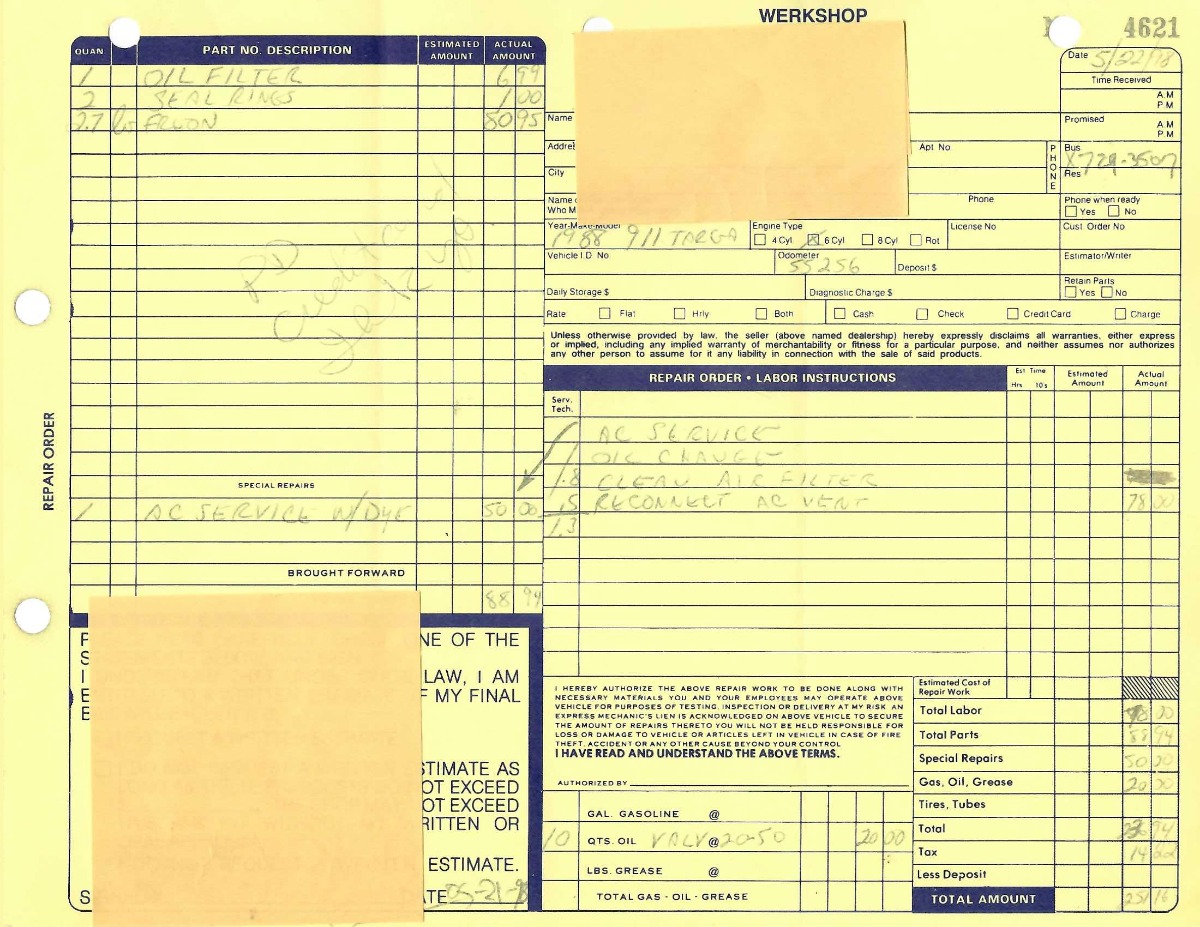 WERKSHOP
4621
QUAN
PART NO. DESCRIPTION
ESTIMATED AMOUNT
ACTUAL AMOUNT
1 OIL FILTER 6 99
2 SEAL RINGS 1 00
2.7 lbs FREON 80 95
PD
SPECIAL REPAIRS
1 AC SERVICE W/DYE 50 00
BROUGHT FORWARD
88 94
REPAIR ORDER
NE OF THE
LAW, I AM
F MY FINAL
STIMATE AS
OT EXCEED
OT EXCEED
RITTEN OR
ESTIMATE.
ATE 05-21-98
Date 5/22/98
Time Received
A.M
P M
Promised
A M
P M
Name
Addre
Apt No
PHONE
Bus X729-3507
City
Res
Name o
Who M
Phone
Phone when ready
Yes No
Year-Make-Model 1988 911 TARGA
Engine Type
4 Cyl 6 Cyl 8 Cyl Rot
License No
Cust Order No
Vehicle I.D No.
Odometer 55256
Deposit $
Estimator/Writer
Daily Storage $
Diagnostic Charge $
Retain Parts
Yes No
Rate Flat Hrly Both Cash Check Credit Card Charge
Unless otherwise provided by law, the seller (above named dealership) hereby expressly disclaims all warranties, either express
or implied, including any implied warranty of merchantability or fitness for a particular purpose, and neither assumes nor authorizes
any other person to assume for it any liability in connection with the sale of said products.
REPAIR ORDER • LABOR INSTRUCTIONS
Est Time
Hrs 10's
Estimated Amount
Actual Amount
Serv. Tech.
AC SERVICE
OIL CHANGE
1.8 CLEAN AIR FILTER
.5 RECONNECT AC VENT 78 00
1.3
I HEREBY AUTHORIZE THE ABOVE REPAIR WORK TO BE DONE ALONG WITH
NECESSARY MATERIALS YOU AND YOUR EMPLOYEES MAY OPERATE ABOVE
VEHICLE FOR PURPOSES OF TESTING, INSPECTION OR DELIVERY AT MY RISK AN
EXPRESS MECHANIC'S LIEN IS ACKNOWLEDGED ON ABOVE VEHICLE TO SECURE
THE AMOUNT OF REPAIRS THERETO YOU WILL NOT BE HELD RESPONSIBLE FOR
LOSS OR DAMAGE TO VEHICLE OR ARTICLES LEFT IN VEHICLE IN CASE OF FIRE
THEFT, ACCIDENT OR ANY OTHER CAUSE BEYOND YOUR CONTROL
I HAVE READ AND UNDERSTAND THE ABOVE TERMS.
AUTHORIZED BY
GAL. GASOLINE @
10 QTS. OIL VALV @ 20-50 20 00
LBS. GREASE @
TOTAL GAS - OIL - GREASE
Estimated Cost of Repair Work
Total Labor 78 00
Total Parts 88 94
Special Repairs 50 00
Gas, Oil, Grease 20 00
Tires, Tubes
Total 236 94
Tax 14 22
Less Deposit
TOTAL AMOUNT 251 16